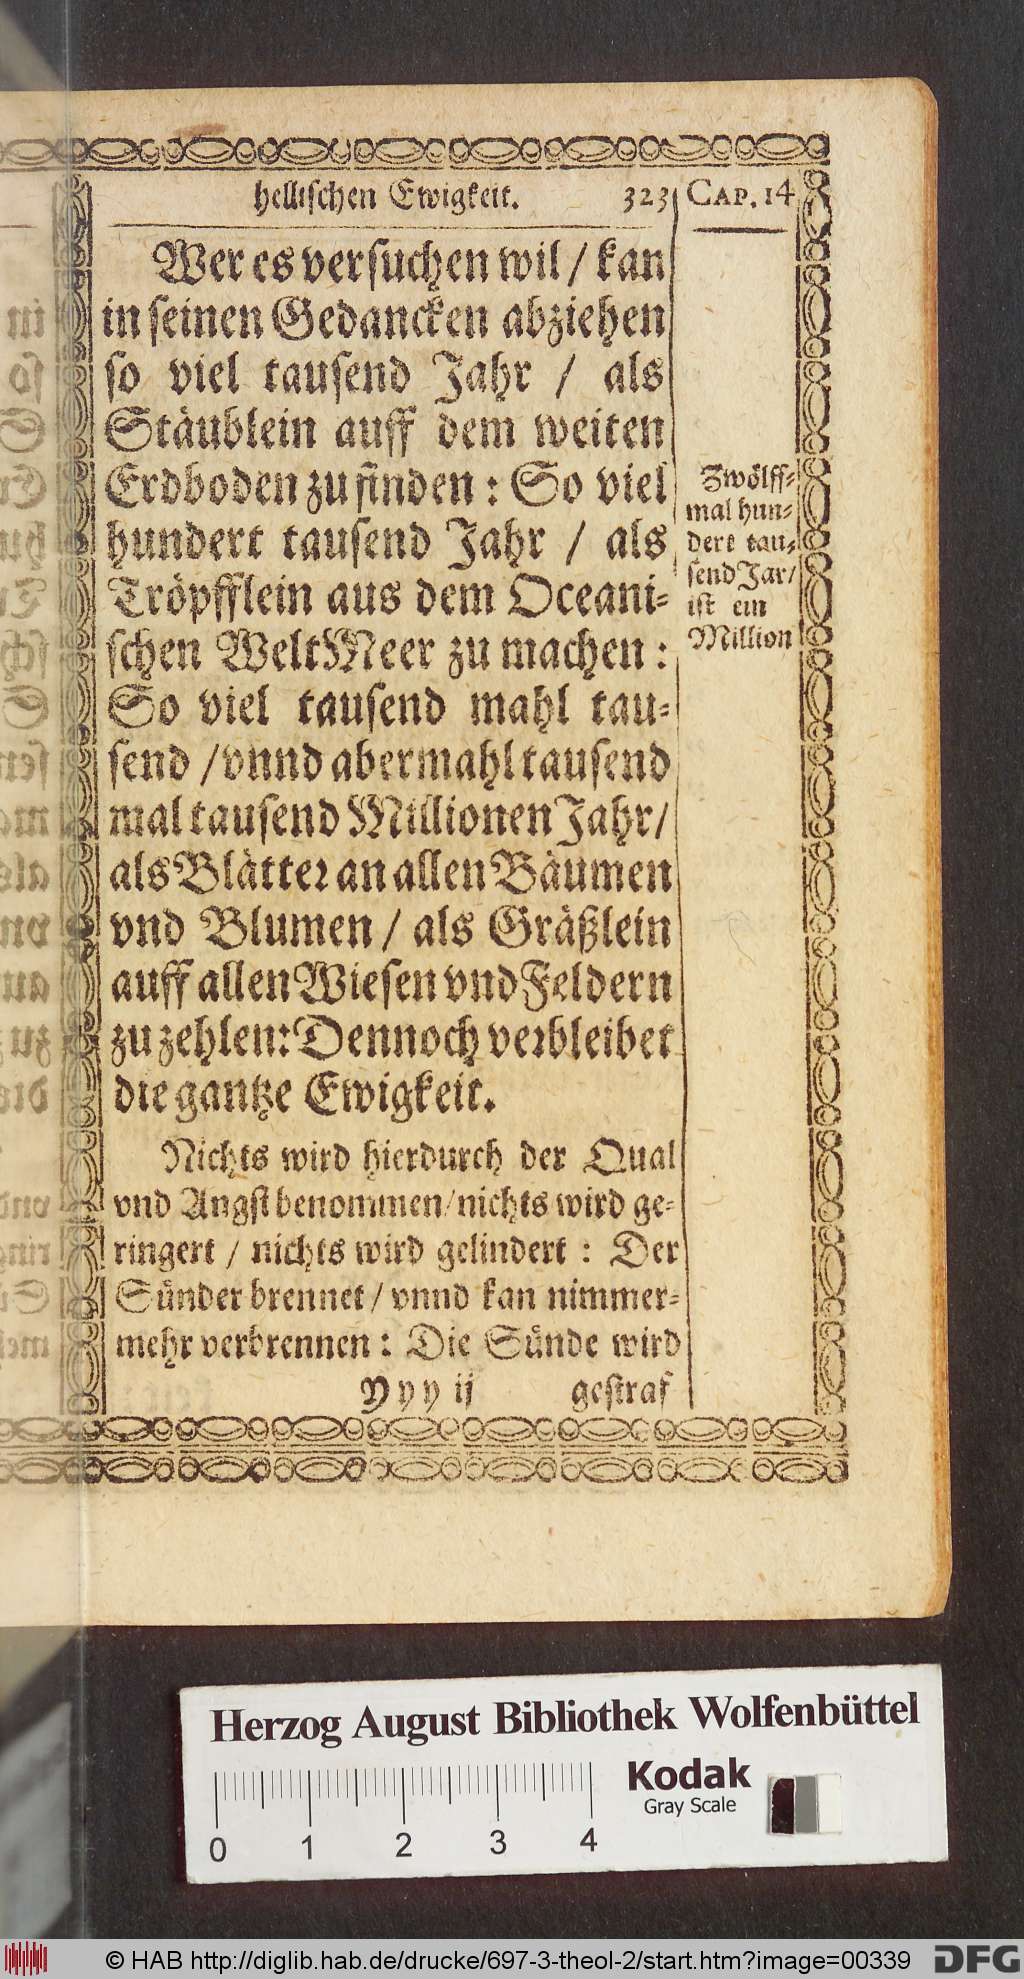 hellischen Ewigkeit. 323 CAP. 14
Wer es versuchen wil / kan
in seinen Gedancken abziehen
so viel tausend Jahr / als
Stäublein auff dem weiten
Erdboden zu finden : So viel
hundert tausend Jahr / als
Tröpfflein aus dem Oceani-
schen WeltMeer zu machen :
So viel tausend mahl tau-
send / vnnd abermahl tausend
mal tausend Millionen Jahr /
als Blätter an allen Bäumen
vnd Blumen / als Gräßlein
auff allen Wiesen vnd Feldern
zu zehlen: Dennoch verbleibet
die gantze Ewigkeit.
Zwölff-
mal hun-
dert tau-
send Jar /
ist ein
Million
Nichts wird hierdurch der Qual
vnd Angst benommen / nichts wird ge-
ringert / nichts wird gelindert : Der
Sünder brennet / vnnd kan nimmer-
mehr verbrennen : Die Sünde wird
Yyy ij gestraf
Herzog August Bibliothek Wolfenbüttel
Kodak
Gray Scale
0 1 2 3 4
© HAB http://diglib.hab.de/drucke/697-3-theol-2/start.htm?image=00339 DFG